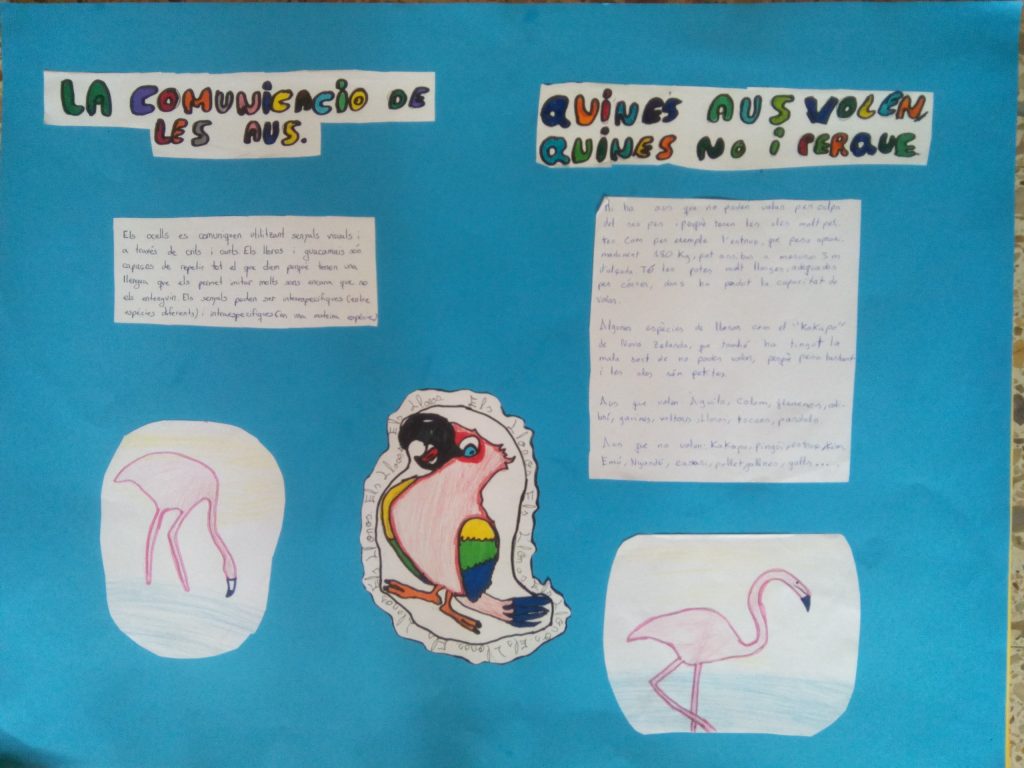 LA COMUNICACIO DE
LES AUS.
Els ocells es comuniquen utilitzant senyals visuals i
a través de crits i cants. Els lloros i guacamais són
capaços de repetir tot el que diem perquè tenen una
llengua que els permet imitar molts sons encara que no
els entenguin. Els senyals poden ser interespecífiques (entre
espècies diferents) i intraespecífiques (en una mateixa espècie)
QUINES AUS VOLEN,
QUINES NO I PERQUE
Hi ha aus que no poden volar per culpa
del seu pes i perquè tenen les ales molt peti-
tes. Com per exemple l'estruç, que pesa aproxi-
madament 180 Kg, pot arribar a mesurar 3 m
d'alçada. Té les potes molt llargues, adequades
per córrer, doncs ha perdut la capacitat de
volar.
Algunes espècies de lloros com el "Kakapo"
de Nova Zelanda, que també ha tingut la
mala sort de no poder volar, perquè pesa bastant
i les ales són petites.
Aus que volen: Aguila, Colom, flamencs, coli-
brí, gavines, voltors, lloros, tucans, pardals.
Aus que no volen: Kakapo, Pingüí, estruç, Kiwi
Emú, Nyandú, casuari, pollet, gallines, galls....
Els Lloros Els Lloros Els Lloros Els Lloros Els Lloros Els Lloros Els Lloros